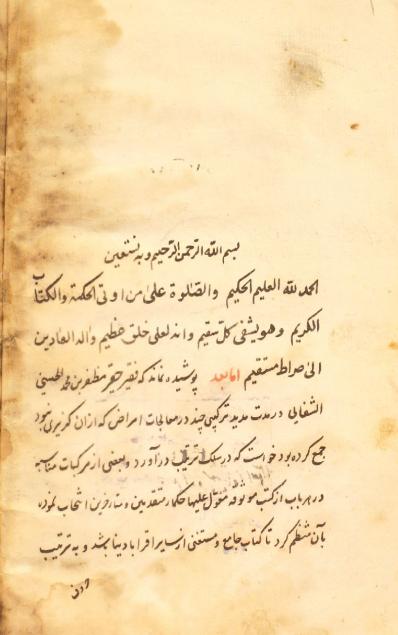 بسم الله الرحمن الرحیم و به نستعین
الحمد لله العلیم الحکیم والصلوة علی من اوتی الحکمة والکتاب
الکریم وهو یشفی کل سقیم وانه لعلی خلق عظیم واله الهادین
الی صراط مستقیم اما بعد پوشیده نماند که فقیر حقیر مظفر بن محمد الحسینی
الشفائی در مدت مدید ترکیبی چند در معالجات امراض که ازان گزیری نبود
جمع کرده بود خواست که در سلک ترتیب در آورد و بعضی از مرکبات مناسبه
در هر باب از کتب موثوقه معول علیها حکماء متقدمین و متاخرین انتخاب نموده
بآن منظم کرد تا کتاب جامع و مستغنی از سایر اقرابادینها باشد و به ترتیب